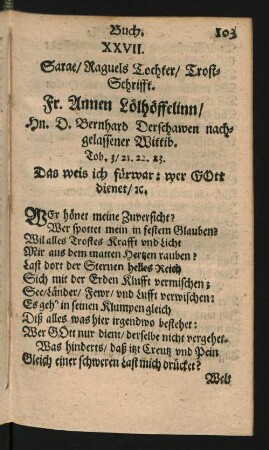 Buch. 103
XXVII.
Sarae/ Raguels Tochter/ Trost-
Schrifft.
Fr. Annen Lölhöffelinn/
Hn. D. Bernhard Derschawen nach-
gelassener Wittib.
Tob. 3/21. 22. 23.
Das weis ich fürwar: wer GOtt
dienet/ ꝛc.
WEr hönet meine Zuversicht?
Wer spottet mein in festem Glauben?
Wil alles Trostes Krafft und Licht
Mir aus dem matten Hertzen rauben?
Last dort der Sternen helles Reich
Sich mit der Erden Klufft vermischen;
See/Länder/ Fewr/ und Lufft verwischen:
Es geh' in seinen Klumpen gleich
Diß alles was hier irgendwo bestehet:
Wer GOtt nur dient/ derselbe nicht vergehet.
Was hinderts/ daß itzt Creutz und Pein
Gleich einer schweren Last mich drücket?
Welt